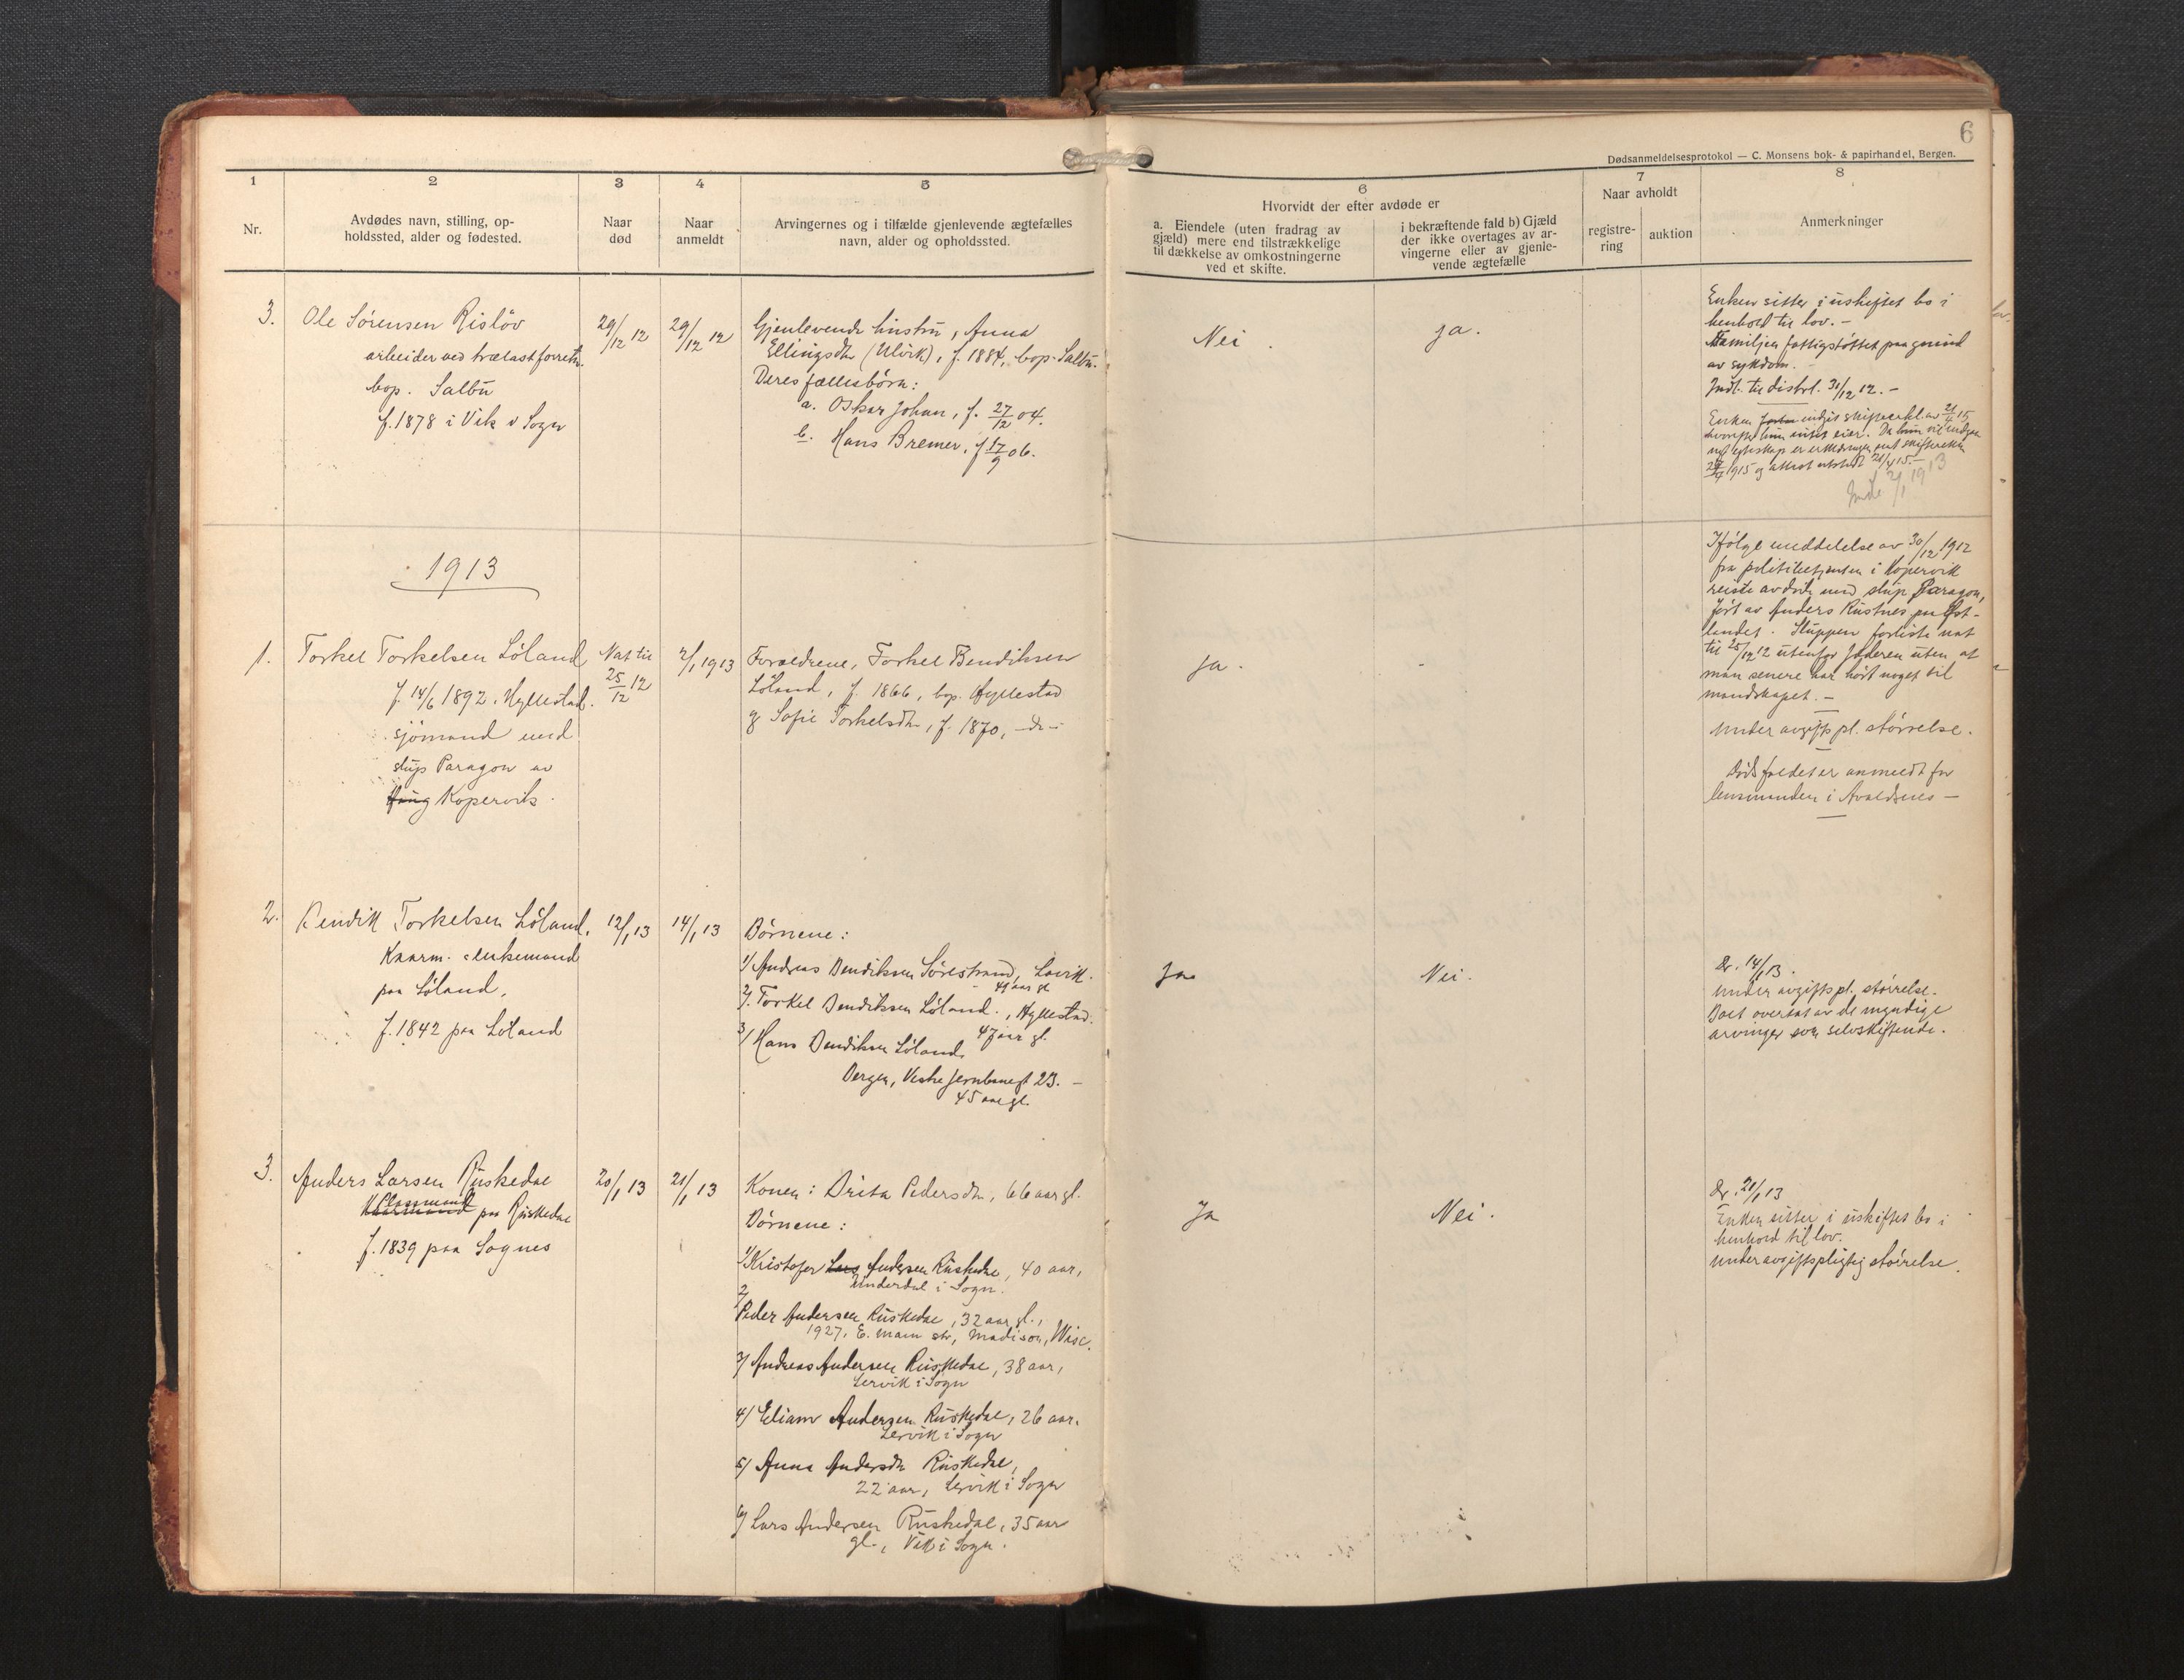 6
Dødsanmeldelsesprotokol — C. Monsens bok- & papirhandel, Bergen.
1
2
3
4
5
6
7
8
Nr.
Avdødes navn, stilling, op-
holdssted, alder og fødested.
Naar
død
Naar
anmeldt
Arvingernes og i tilfælde gjenlevende ægtefælles
navn, alder og opholdssted.
Hvorvidt der efter avdøde er
a. Eiendele (uten fradrag av
gjæld) mere end tilstrækkelige
til dækkelse av omkostningerne
ved et skifte.
i bekræftende fald b) Gjæld
der ikke overtages av ar-
vingerne eller av gjenle-
vende ægtefælle
Naar avholdt
registre-
ring
auktion
Anmerkninger
3.
Ole Sörensen Rislöv
arbeider ved trælastforretn.
bop. Salbu
f. 1878 i Vik i Sogn
29/12 12
29/12 12
Gjenlevende hustru, Anna
Ellingsdtr (Ulvik), f. 1884, bop. Salbu.
Deres fællesbörn:
a. Oskar Johan, f. 27/12 04.
b. Hans Bremer, f 17/9 06.
Nei.
Ja.
Enken sitter i uskiftet bo i
henhold til lov. —
Familjen fattigstöttet paa grund
av sykdom.
Indb. til distrl. 31/12 12. —
Enken indgit skifteerkl. av
1915 og attest utstedt 21/4 15. —
2/1 1913
1913
1.
Torkel Torkelsen Löland
f. 14/6 1892, Hyllestad.
sjömand med
slup Paragon av
Haug Kopervik.
Nat til
25/12 12
2/1 1913
Forældrene, Torkel Bendiksen
Löland, f. 1866, bop. Hyllestad
og Sofie Torkelsdtr, f. 1870, —do—
Ja.
Ifölge meddelelse av 30/12 1912
fra politibetjenten i Kopervik
reiste avdöde med slup Paragon,
fört av Anders Rustnes paa Öst-
landet. Sluppen forliste nat
til 25/12 12 utenfor Jæderen uten at
man senere har hört noget til
mandskapet. —
Under avgiftspl. störrelse.
Dödsfaldet er anmeldt for
lensmanden i Avaldsnes —
2.
Bendik Torkelsen Löland,
Kaarm. enkemand
paa Löland,
f. 1842 paa Löland
12/1 13
14/1 13
Börnene:
1/ Andreas Bendiksen Sörestrand, Lavik.
41 aar gl
2/. Torkel Bendiksen Löland., Hyllestad.
47 aar gl.
3/ Hans Bendiksen Löland,
Bergen, Vestre Jernbanegt 23. —
45 aar gl.
Ja
Nei.
Dr. 14/1 13.
Under avgiftspl. störrelse.
Boet overtat av de myndige
arvinger som selvskiftende.
3.
Anders Larsen Ruskedal
Kaarmand Plassmand paa Ruskedal
f. 1839 paa Sognes
20/1 13
21/1 13
Konen: Brita Pedersdtr, 66 aar gl.
Börnene:
1/ Kristofer Lars Andersen Ruskedal, 40 aar,
Underdal i Sogn.
2/
Peder Andersen Ruskedal, 32 aar gl.,
1927, E. Main str, Madison, Wisc.
3/ Andreas Andersen Ruskedal, 38 aar,
Lervik i Sogn
4/ Eliam Andersen Ruskedal, 26 aar.
Lervik i Sogn
5/ Anna Andersdtr Ruskedal,
22 aar, Lervik i Sogn
6/ Lars Andersen Ruskedal, 35 aar
gl., Vik i Sogn.
Ja
Nei.
Dr. 21/1 13
Enken sitter i uskiftet bo i
henhold til lov.
Under avgiftspligtig störrelse.